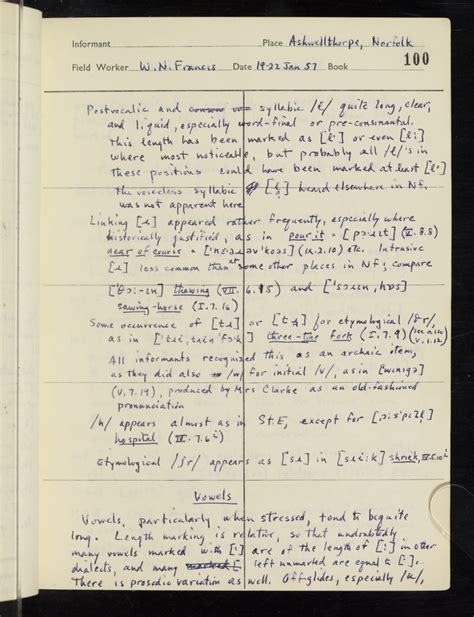 Informant Place Ashwellthorpe, Norfolk
Field Worker W. N. Francis Date 19-22 Jan 57 Book 100
Postvocalic and syllabic /l/ quite long, clear,
and liquid, especially word-final or pre-consonantal.
This length has been marked as [lˑ] or even [lː]
where most noticeable, but probably all /l/'s in
these positions could have been marked at least [lˑ]
The voiceless syllabic [l̥] heard elsewhere in Nf.
was not apparent here
Linking [ɹ] appeared rather frequently, especially where
historically justified, as in pour it = (IX. 8. 8)
near of course = (IX. 2. 10) etc. Intrusive
[ɹ] less common than at some other places in Nf; compare
thawing (VII. 6. 15) and
sawing-horse (I. 7. 16)
Some occurrence of [tɹ] or for etymological /θr/
as in three-tine fork (I. 7. 9) (see also V. 1. 12)
All informants recognized this as an archaic item,
as they did also /w/ for initial /v/, as in
(V. 7. 19), produced by Mrs Clarke as an old-fashioned
pronunciation
/h/ appears almost as in St.E, except for
hospital
Etymological /ʃr/ appears as [sɹ] in shriek,
Vowels
Vowels, particularly when stressed, tend to be quite
long. Length marking is relative, so that undoubtedly
many vowels marked with [ˑ] are of the length of [ː] in other
dialects, and many left unmarked are equal to [ˑ].
There is prosodic variation as well. Off-glides, especially